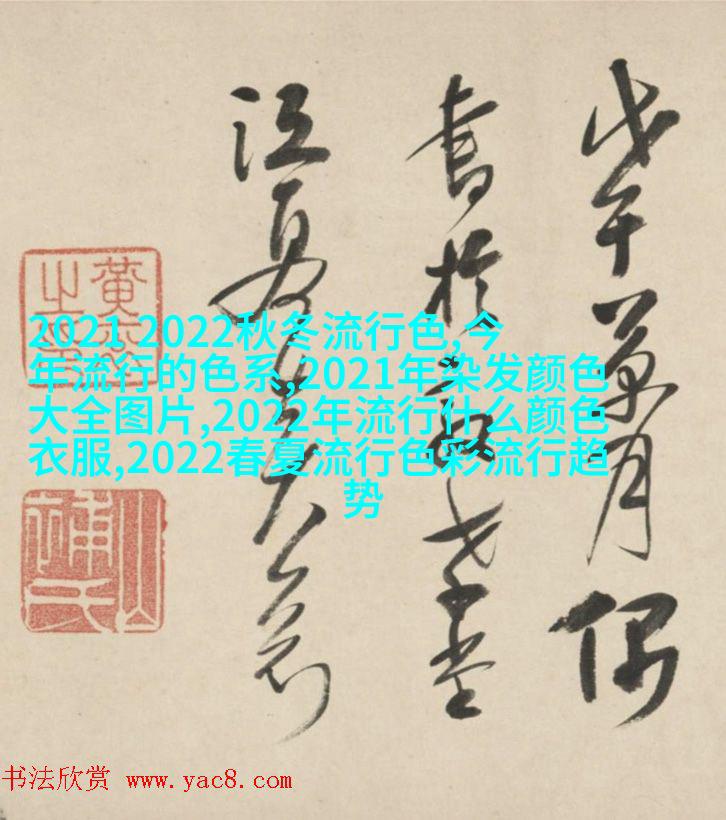 戊午月偶
書於堂
江夏
2021 2022秋冬流行色,今
年流行的色系,2021年染发颜色
大全图片,2022年流行什么颜色
衣服,2022春夏流行色彩流行趋
势
书法欣赏 www.yac8.com